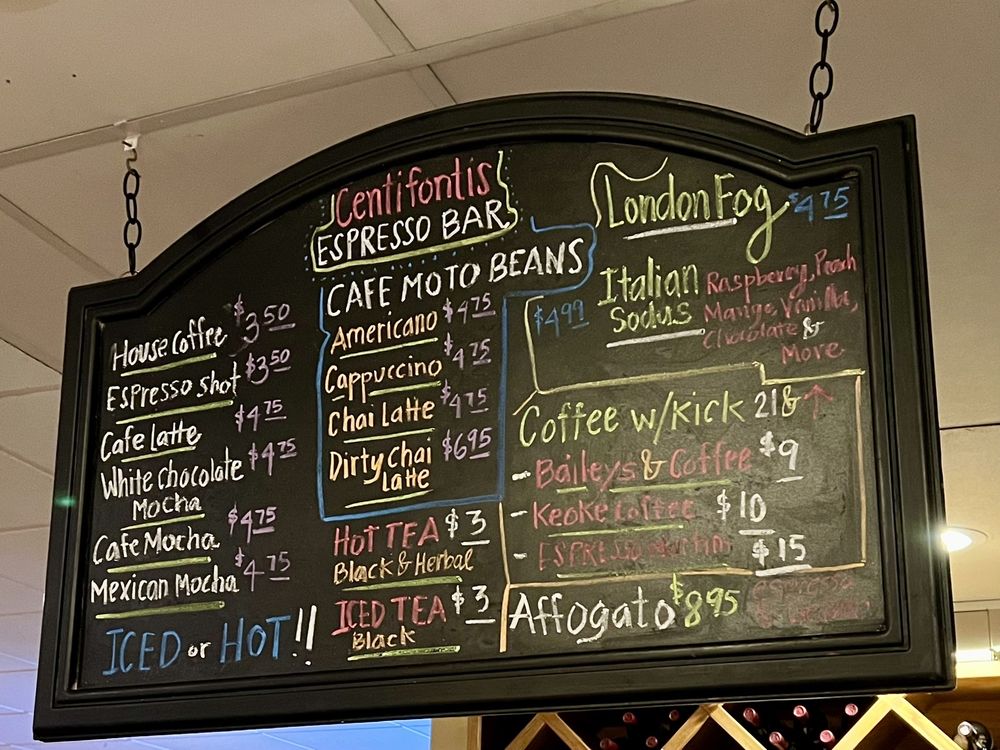 Centifontis
ESPRESSO BAR
House Coffee $3.50
Espresso Shot $3.50
Cafe Latte $4.75
White Chocolate $4.75
Mocha
Cafe Mocha $4.75
Mexican Mocha $4.75
ICED or HOT!!
CAFE MOTO BEANS
Americano $4.75
Cappuccino $4.75
Chai Latte $4.75
Dirty Chai $6.95
Latte
HOT TEA $3
Black & Herbal
ICED TEA $3
Black
London Fog $4.75
Italian
Sodus
$4.99
Raspberry, Peach
Mango, Vanilla,
Chocolate &
More
Coffee w/Kick 21 & ↑
- Baileys & Coffee $9
- Keoke Coffee $10
- ESPRESSO $15
Affogato $8.95